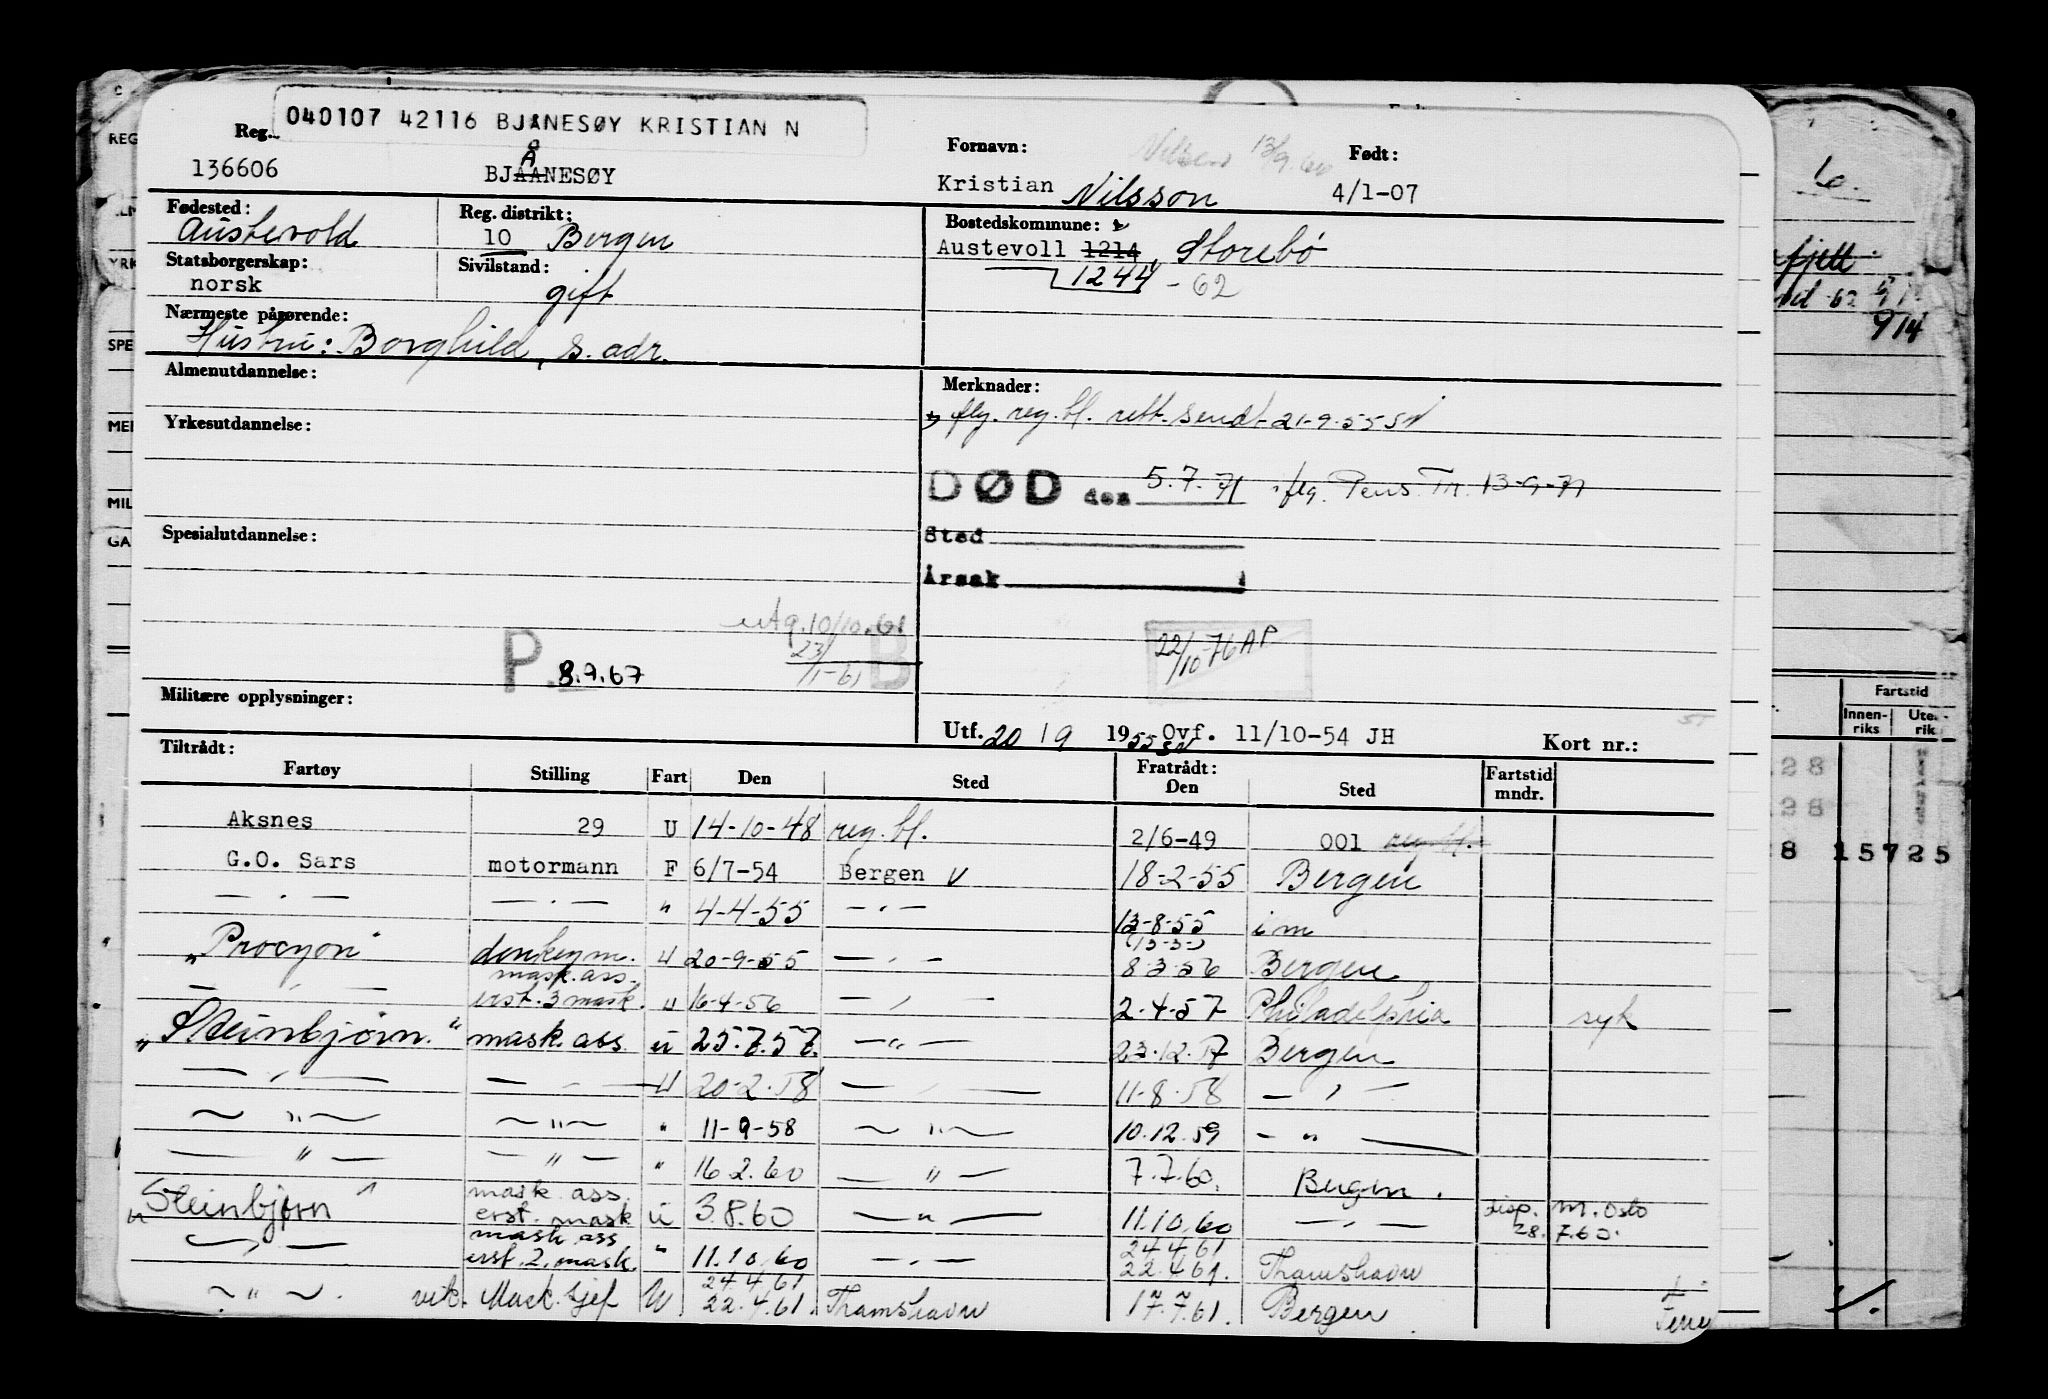 040107 42116 BJÅNESØY KRISTIAN N
Reg.
136606
BJAANESØY
Å
Fornavn:
Nilsen 13/9.60
Kristian Nilsson
Født:
4/1-07
Fødested:
Austevold
Reg. distrikt:
10 Bergen
Bostedskommune:
Austevoll 1214, Storebø
1244 - 62
Statsborgerskap:
norsk
Sivilstand:
gift
Nærmeste pårørende:
Hustru: Borghild, s. adr.
Almenutdannelse:
Merknader:
flg. reg. bl. rett. sendt 21-9-55 SN
Yrkesutdannelse:
DØD den 5.7.71 flg. Pens. Tr. 13-9-71
Sted
Årsak
Spesialutdannelse:
utg. 10/10.61
23/1-61
P. 8.9.67 B
22/10-76 AP
Militære opplysninger:
Utf. 20/9 1955 SN Ovf. 11/10-54 JH Kort nr.:
Tiltrådt: Fratrådt:
Fartøy Stilling Fart Den Sted Den Sted Fartstid mndr.
Aksnes 29 U 14-10-48 reg. bl. 2/6-49 001 reg. bl.
G.O. Sars motormann F 6/7-54 Bergen V 18-2-55 Bergen
— . — — . — " 4-4-55 — . — 13-8-55 i m
"Procyon" donkeym. U 20-9-55 — . — 8.3.56 Bergen
mask. ass.
— , — erst. 3 mask. U 16-4-56 — , — 2.4.57 Philadelphia syk
"Steinbjørn." mask. ass. U 25.7.57. — " — 23.12.57 Bergen
— , — — - — U 20-2.58 — , — 11-8.58 — , —
— " — — " — " 11-9-58 — " — 10.12.59 — " —
— " — — " — " 16.2.60 — " — 7.7.60. Bergen.
mask. ass.
"Steinbjørn" erst. mask U 3.8.60 — " — 11.10.60 — , — disp. M. Oslo 28.7.60.
mask. ass 24.4.61
— , — erst. 2. mask. " 11.10.60 — . — 22.4.61. Thamshavn
24.4.61
— " — vik. Mask. sjef U 22.4.61. Thamshavn 17.7.61. Bergen
REG
YRK
SPE
MIL
GA
6.
62
914
Fartstid
Innen-riks Uten-rik
28
28
8 15725